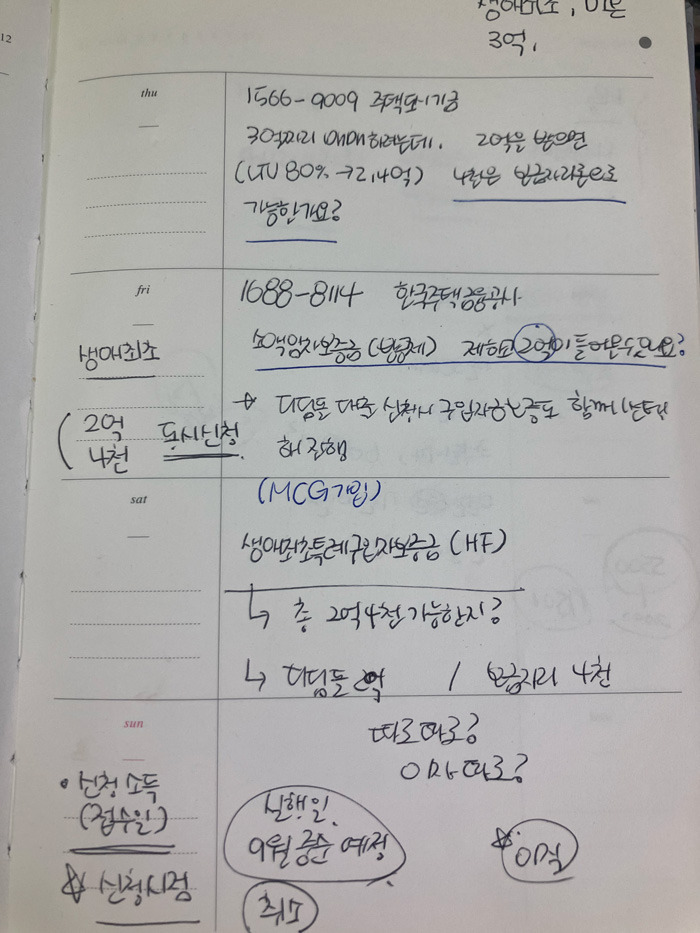 생애최초, 미혼
3억,
12
thu
1566-9009 주택도시기금
3억짜리 매매하려는데, 2억을 받으면
(LTV 80% → 2,4억) 4천은 보금자리론으로
가능한가요?
fri
1688-8114 한국주택금융공사
생애최초
소액임차보증금(방공제) 제하고 2억이 들어올수있나요?
☆ 디딤돌 대출 신청시 구입자금보증도 함께
2억
4천 동시신청.
해 진행
sat
(MCG가입)
생애최초특례구입자보증금 (HF)
↳ 총 2억4천 가능한지?
↳ 디딤돌 2억 / 보금자리 4천
sun
따로따로?
이자 따로?
• 신청 소득
(접수일)
실행일,
9월 중순 예정
☆ 이직
☆ 신청시점
취소